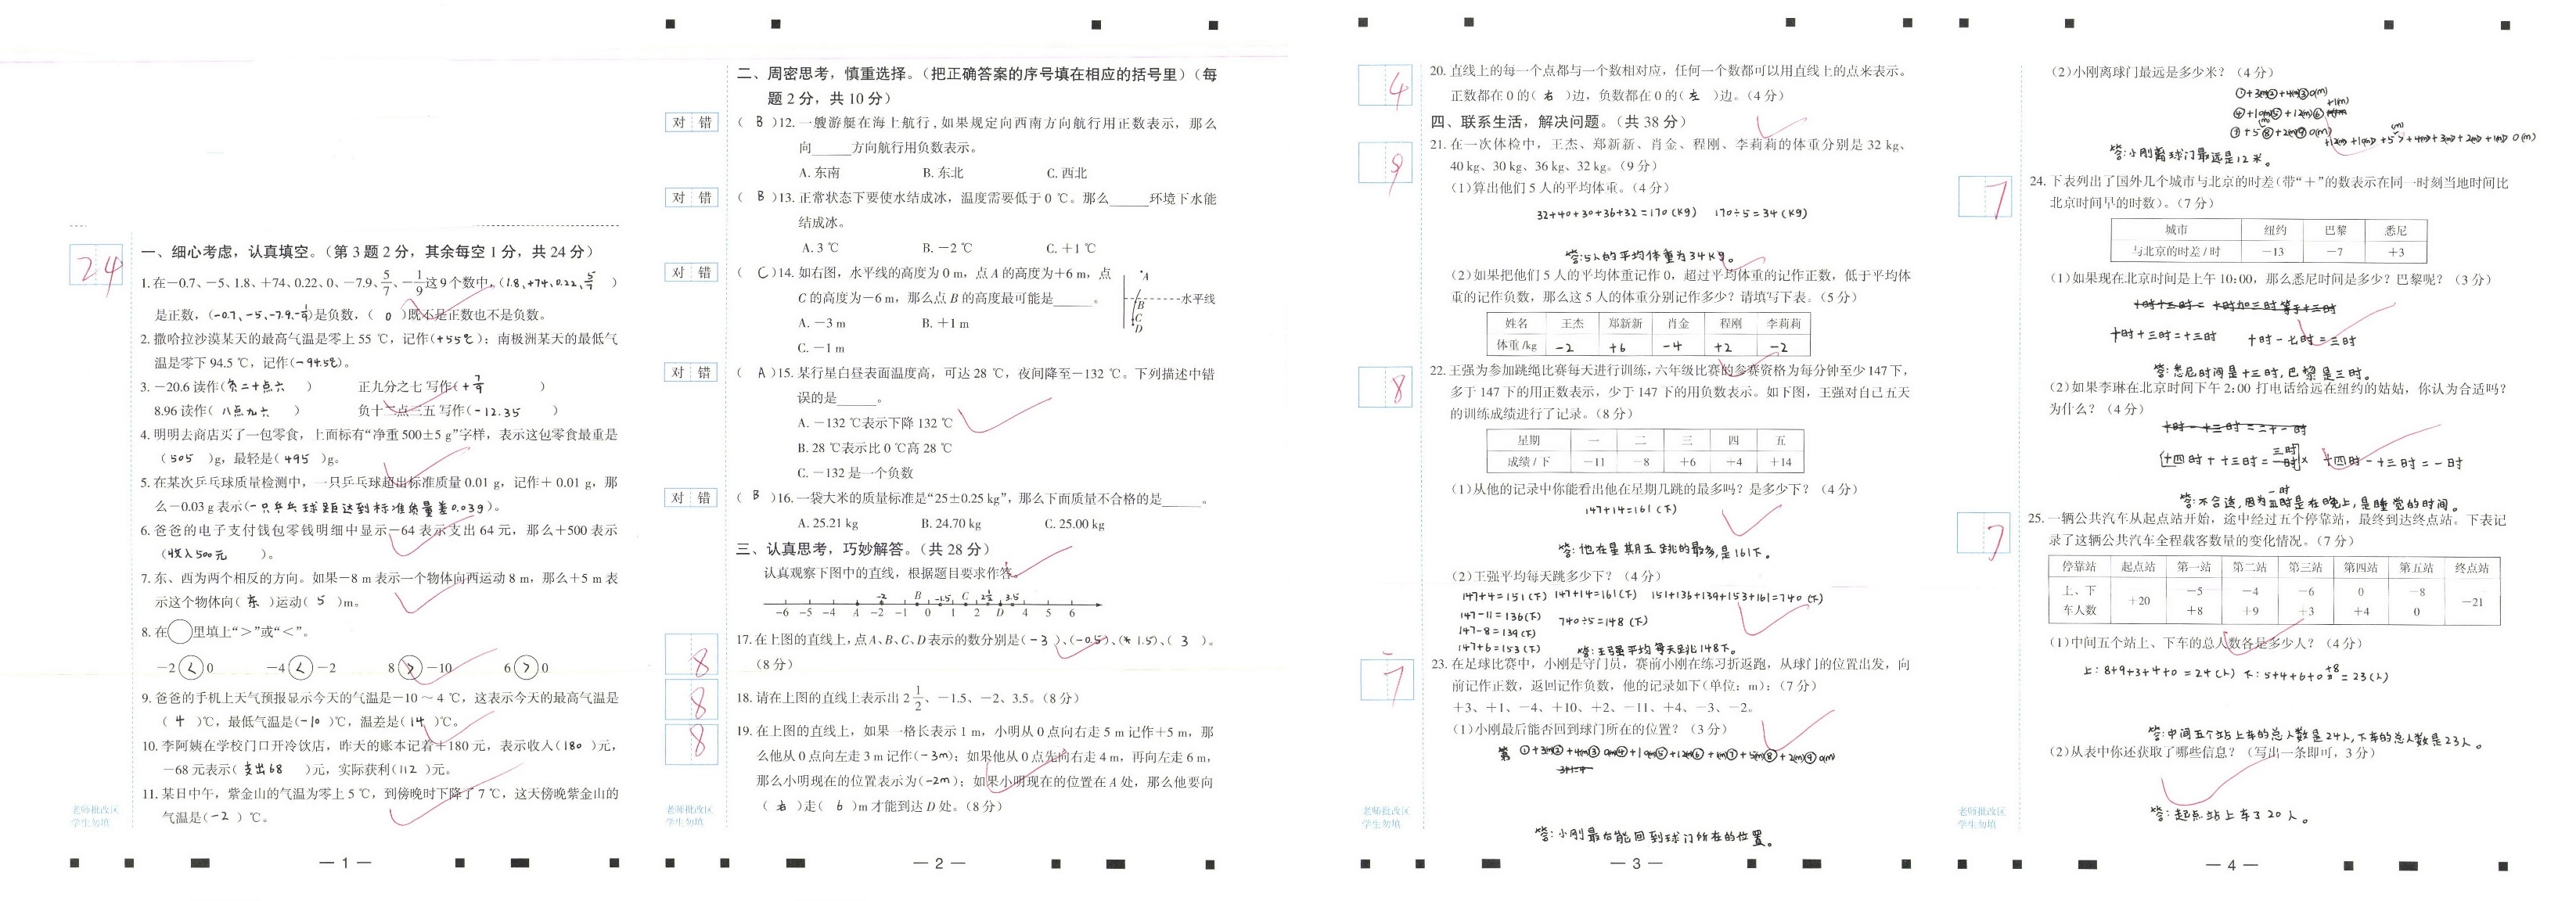 24
一、细心考虑，认真填空。（第 3 题 2 分，其余每空 1 分，共 24 分）
1. 在－0.7、－5、1.8、＋74、0.22、0、－7.9、5/7、－1/9 这 9 个数中，（1.8、+74、0.22、5/7）
是正数，（-0.7、-5、-7.9、-1/9）是负数，（ 0 ）既不是正数也不是负数。
2. 撒哈拉沙漠某天的最高气温是零上 55 ℃，记作（+55℃）；南极洲某天的最低气
温是零下 94.5 ℃，记作（-94.5℃）。
3. －20.6 读作（负二十点六） 正九分之七 写作（+7/9）
8.96 读作（八点九六） 负十二点三五 写作（-12.35）
4. 明明去商店买了一包零食，上面标有“净重 500±5 g”字样，表示这包零食最重是
（ 505 ）g，最轻是（ 495 ）g。
5. 在某次乒乓球质量检测中，一只乒乓球超出标准质量 0.01 g，记作＋0.01 g，那
么－0.03 g 表示（一只乒乓球距达到标准质量差0.03g）。
6. 爸爸的电子支付钱包零钱明细中显示－64 表示支出 64 元，那么＋500 表示
（收入500元）。
7. 东、西为两个相反的方向。如果－8 m 表示一个物体向西运动 8 m，那么＋5 m 表
示这个物体向（ 东 ）运动（ 5 ）m。
8. 在○里填上“＞”或“＜”。
－2 < 0 －4 < －2 8 > －10 6 > 0
9. 爸爸的手机上天气预报显示今天的气温是－10 ～ 4 ℃，这表示今天的最高气温是
（ 4 ）℃，最低气温是（-10）℃，温差是（14）℃。
10. 李阿姨在学校门口开冷饮店，昨天的账本记着＋180 元，表示收入（180）元，
－68 元表示（支出68）元，实际获利（112）元。
11. 某日中午，紫金山的气温为零上 5 ℃，到傍晚时下降了 7 ℃，这天傍晚紫金山的
气温是（-2）℃。
老师批改区
学生勿填
— 1 —
二、周密思考，慎重选择。（把正确答案的序号填在相应的括号里）（每
题 2 分，共 10 分）
对 错
（ B ）12. 一艘游艇在海上航行，如果规定向西南方向航行用正数表示，那么
向______方向航行用负数表示。
A. 东南 B. 东北 C. 西北
对 错
（ B ）13. 正常状态下要使水结成冰，温度需要低于 0 ℃。那么______环境下水能
结成冰。
A. 3 ℃ B. －2 ℃ C. ＋1 ℃
对 错
（ C ）14. 如右图，水平线的高度为 0 m，点 A 的高度为＋6 m，点
C 的高度为－6 m，那么点 B 的高度最可能是______。
A. －3 m B. ＋1 m
C. －1 m
A
B
水平线
C
D
对 错
（ A ）15. 某行星白昼表面温度高，可达 28 ℃，夜间降至－132 ℃。下列描述中错
误的是______。
A. －132 ℃表示下降 132 ℃
B. 28 ℃表示比 0 ℃高 28 ℃
C. －132 是一个负数
对 错
（ B ）16. 一袋大米的质量标准是“25±0.25 kg”，那么下面质量不合格的是______。
A. 25.21 kg B. 24.70 kg C. 25.00 kg
三、认真思考，巧妙解答。（共 28 分）
认真观察下图中的直线，根据题目要求作答。
-2 B -1.5 C 2½ 3.5
A D
－6 －5 －4 －3 －2 －1 0 1 2 3 4 5 6
8
17. 在上图的直线上，点 A、B、C、D 表示的数分别是（-3）、（-0.5）、（1.5）、（ 3 ）。
（8 分）
8
18. 请在上图的直线上表示出 2 1/2、－1.5、－2、3.5。（8 分）
8
19. 在上图的直线上，如果一格长表示 1 m，小明从 0 点向右走 5 m 记作＋5 m，那
么他从 0 点向左走 3 m 记作（-3m）；如果他从 0 点先向右走 4 m，再向左走 6 m，
那么小明现在的位置表示为（-2m）；如果小明现在的位置在 A 处，那么他要向
（ 右 ）走（ 6 ）m 才能到达 D 处。（8 分）
老师批改区
学生勿填
— 2 —
4
20. 直线上的每一个点都与一个数相对应，任何一个数都可以用直线上的点来表示。
正数都在 0 的（ 右 ）边，负数都在 0 的（ 左 ）边。（4 分）
四、联系生活，解决问题。（共 38 分）
9
21. 在一次体检中，王杰、郑新新、肖金、程刚、李莉莉的体重分别是 32 kg、
40 kg、30 kg、36 kg、32 kg。（9 分）
（1）算出他们 5 人的平均体重。（4 分）
32+40+30+36+32=170(kg) 170÷5=34(kg)
答：5人的平均体重为34kg。
（2）如果把他们 5 人的平均体重记作 0，超过平均体重的记作正数，低于平均体
重的记作负数，那么这 5 人的体重分别记作多少？请填写下表。（5 分）
姓名 王杰 郑新新 肖金 程刚 李莉莉
体重/kg -2 +6 -4 +2 -2
8
22. 王强为参加跳绳比赛每天进行训练，六年级比赛的参赛资格为每分钟至少 147 下，
多于 147 下的用正数表示，少于 147 下的用负数表示。如下图，王强对自己五天
的训练成绩进行了记录。（8 分）
星期 一 二 三 四 五
成绩/下 －11 －8 ＋6 ＋4 ＋14
（1）从他的记录中你能看出他在星期几跳的最多吗？是多少下？（4 分）
147+14=161(下)
答：他在星期五跳的最多，是161下。
（2）王强平均每天跳多少下？（4 分）
147+4=151(下) 147+14=161(下) 151+136+139+153+161=740(下)
147-11=136(下)
740÷5=148(下)
147-8=139(下)
147+6=153(下) 答：王强平均每天跳148下。
7
23. 在足球比赛中，小刚是守门员，赛前小刚在练习折返跑，从球门的位置出发，向
前记作正数，返回记作负数，他的记录如下（单位：m）：（7 分）
＋3、＋1、－4、＋10、＋2、－11、＋4、－3、－2。
（1）小刚最后能否回到球门所在的位置？（3 分）
第 ①+3m②+4m③0m④+10m⑤+12m⑥+1m⑦+5m⑧+2m⑨0m
答：小刚最后能回到球门所在的位置。
老师批改区
学生勿填
— 3 —
（2）小刚离球门最远是多少米？（4 分）
①+3m②+4m③0(m)
+1(m)
④+10m⑤+12m⑥
⑦+5⑧+2m⑨0(m)
答：小刚离球门最远是12米。
7
24. 下表列出了国外几个城市与北京的时差（带“＋”的数表示在同一时刻当地时间比
北京时间早的时数）。（7 分）
城市 纽约 巴黎 悉尼
与北京的时差/时 －13 －7 ＋3
（1）如果现在北京时间是上午 10:00，那么悉尼时间是多少？巴黎呢？（3 分）
十时+三时=十三时 十时-七时=三时
答：悉尼时间是十三时，巴黎是三时。
（2）如果李琳在北京时间下午 2:00 打电话给远在纽约的姑姑，你认为合适吗？
为什么？（4 分）
十四时-十三时=一时
答：不合适，因为一时是在晚上，是睡觉的时间。
7
25. 一辆公共汽车从起点站开始，途中经过五个停靠站，最终到达终点站。下表记
录了这辆公共汽车全程载客数量的变化情况。（7 分）
停靠站 起点站 第一站 第二站 第三站 第四站 第五站 终点站
上、下 ＋20 －5 －4 －6 0 －8 －21
车人数 ＋8 ＋9 ＋3 ＋4 0
（1）中间五个站上、下车的总人数各是多少人？（4 分）
上：8+9+3+4+0=24(人) 下：5+4+6+0+8=23(人)
答：中间五个站上车的总人数是24人，下车的总人数是23人。
（2）从表中你还获取了哪些信息？（写出一条即可，3 分）
答：起点站上车了20人。
老师批改区
学生勿填
— 4 —